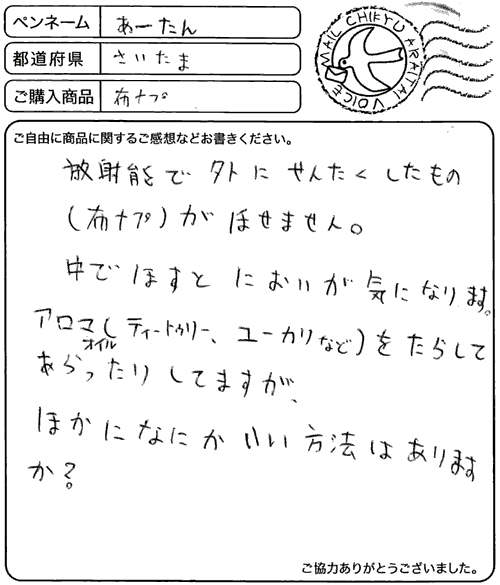 ペンネーム あーたん
都道府県 さいたま
ご購入商品 布ナプ
MAIL CHIKYU ARAITAI VOICE
ご自由に商品に関するご感想などお書きください。
放射能で外にせんたくしたもの
(布ナプ)がほせません。
中でほすとにおいが気になります。
アロマオイル(ティートゥリー、ユーカリなど)をたらして
あらったりしてますが、
ほかになにかいい方法はあります
か?
ご協力ありがとうございました。